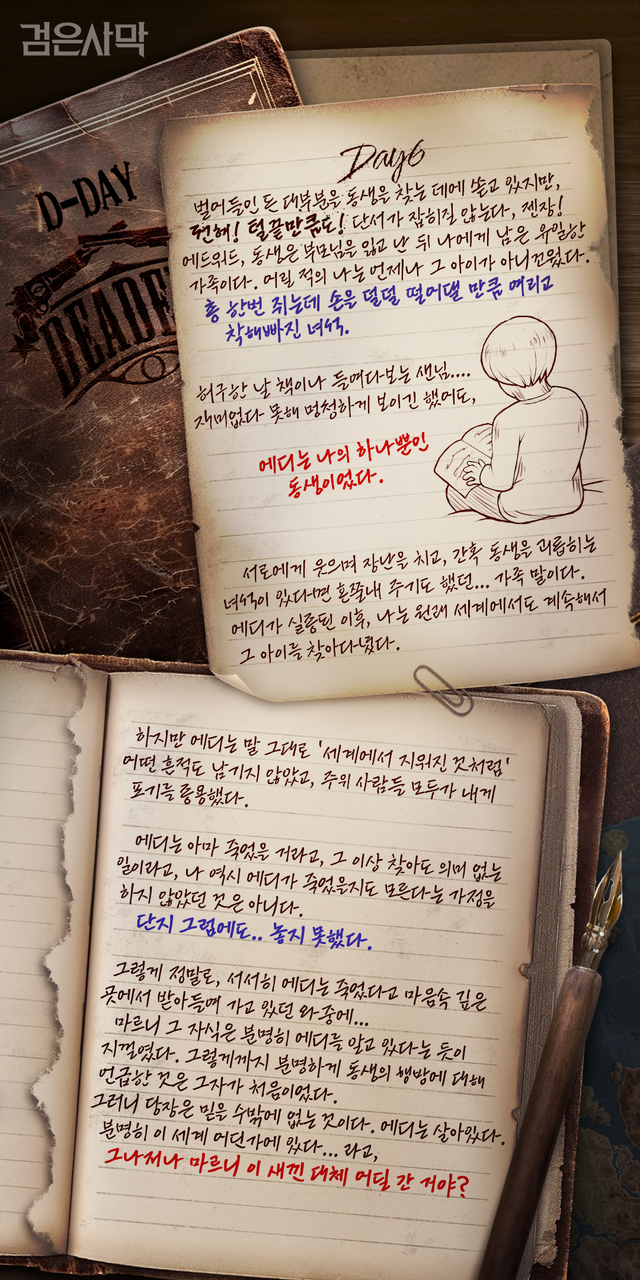 검은사막
D-DAY
DEADE
Day6
벌어들인 돈 대부분을 동생을 찾는 데에 쏟고 있지만,
전혀! 털끝만큼도! 단서가 잡히질 않는다, 젠장!
에드워드, 동생은 부모님을 잃고 난 뒤 나에게 남은 유일한
가족이다. 어릴 적의 나는 언제나 그 아이가 아니꼬웠다.
총 한번 쥐는데 손을 덜덜 떨어댈 만큼 여리고
착해빠진 녀석.
허구한 날 책이나 들여다보는 샌님....
재미없다 못해 멍청하게 보이긴 했어도,
에디는 나의 하나뿐인
동생이었다.
서로에게 웃으며 장난을 치고, 간혹 동생을 괴롭히는
녀석이 있다면 혼쭐내 주기도 했던... 가족 말이다.
에디가 실종된 이후, 나는 원래 세계에서도 계속해서
그 아이를 찾아다녔다.
하지만 에디는 말 그대로 '세계에서 지워진 것처럼'
어떤 흔적도 남기지 않았고, 주위 사람들 모두가 내게
포기를 종용했다.
에디는 아마 죽었을 거라고, 그 이상 찾아도 의미 없는
일이라고, 나 역시 에디가 죽었을지도 모른다는 가정을
하지 않았던 것은 아니다.
단지 그럼에도.. 놓지 못했다.
그렇게 정말로, 서서히 에디는 죽었다고 마음속 깊은
곳에서 받아들여 가고 있던 와중에...
마르니 그 자식은 분명히 에디를 알고 있다는 듯이
지껄였다. 그렇게까지 분명하게 동생의 행방에 대해
언급한 것은 그자가 처음이었다.
그러니 당장은 믿을 수밖에 없는 것이다. 에디는 살아있다.
분명히 이 세계 어딘가에 있다... 라고,
그나저나 마르니 이 새낀 대체 어딜 간 거야?